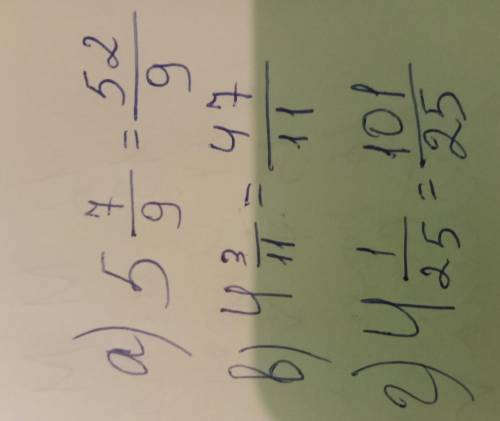 а) 5 7/9 = 52/9
в) 4 3/11 = 47/11
г) 4 1/25 = 101/25